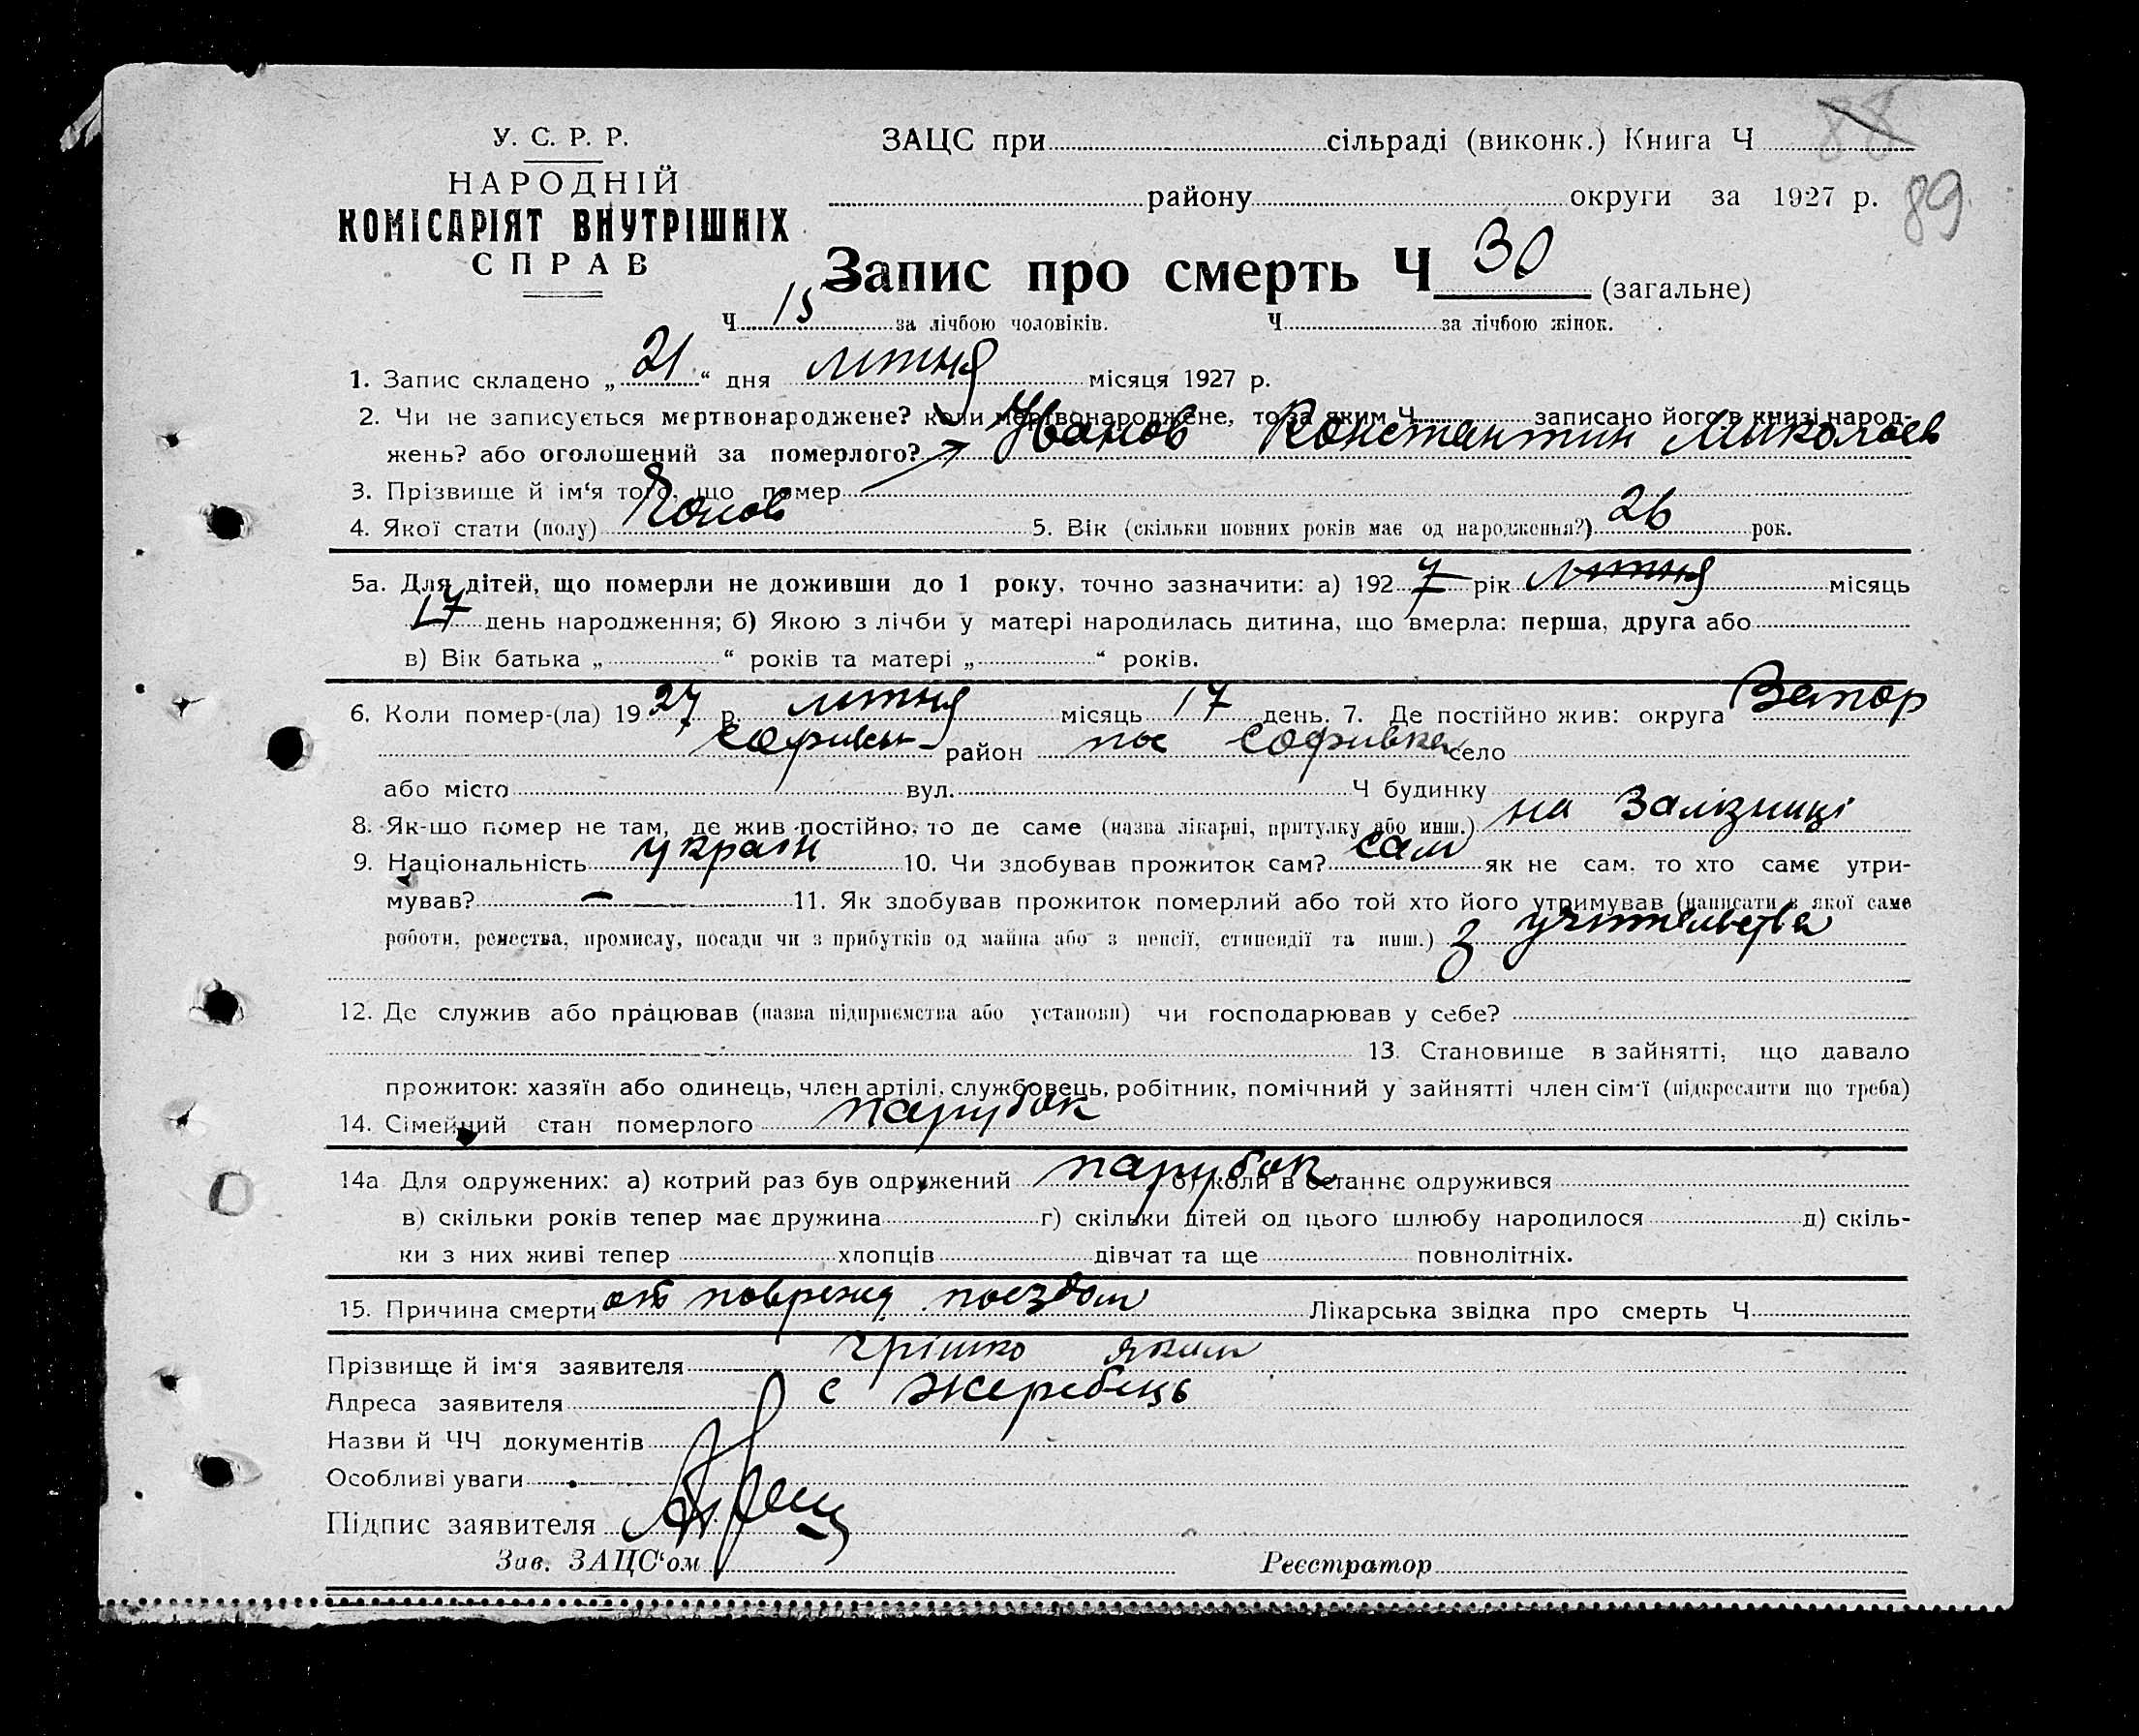 88
У. С. Р. Р.
НАРОДНІЙ
КОМІСАРІЯТ ВНУТРІШНІХ
СПРАВ
ЗАЦС при сільраді (виконк.) Книга Ч
району округи за 1927 р. 89
Запис про смерть Ч 30 (загальне)
Ч 15 за лічбою чоловіків. Ч за лічбою жінок.
1. Запис складено „ 21 “ дня місяця 1927 р.
2. Чи не записується мертвонароджене? коли мертвонароджене, то за яким Ч записано його в книзі народ-
жень? або оголошений за померлого? Иванов Константин Миколаев
3. Прізвище й ім‘я того, що помер
4. Якої стати (полу) 5. Вік (скільки повних років має од народження?) 26 рок.
5а. Для дітей, що померли не доживши до 1 року, точно зазначити: а) 192 7 рік місяць
17 день народження; б) Якою з лічби у матері народилась дитина, що вмерла: перша, друга або
в) Вік батька „ “ років та матері „ “ років.
6. Коли помер-(ла) 19 27 р. місяць 17 день. 7. Де постійно жив: округа Запор
район пос Софивка село
або місто вул. Ч будинку
8. Як-що помер не там, де жив постійно, то де саме (назва лікарні, притулку або инш.) на Залізниці
9. Національність україн 10. Чи здобував прожиток сам? сам як не сам, то хто саме утри-
мував? — 11. Як здобував прожиток померлий або той хто його утримував (написати з якої саме
роботи, ремества, промислу, посади чи з прибутків од майна або з пенсії, стипендії та инш.) З учительства
12. Де служив або працював (назва підприємства або установи) чи господарював у себе?
13. Становище в зайнятті, що давало
прожиток: хазяїн або одинець, член артілі, службовець, робітник, помічний у зайнятті член сім‘ї (підкреслити що треба)
14. Сімейний стан померлого парубок
14а Для одружених: а) котрий раз був одружений парубок б) коли в останнє одружився
в) скільки років тепер має дружина г) скільки дітей од цього шлюбу народилося д) скіль-
ки з них живі тепер хлопців дівчат та ще повнолітніх.
15. Причина смерти от поврежд поездом Лікарська звідка про смерть Ч
Прізвище й ім‘я заявителя Грішко Яким
Адреса заявителя с Жеребець
Назви й ЧЧ документів
Особливі уваги
Підпис заявителя
Зав. ЗАЦС‘ом Реєстратор